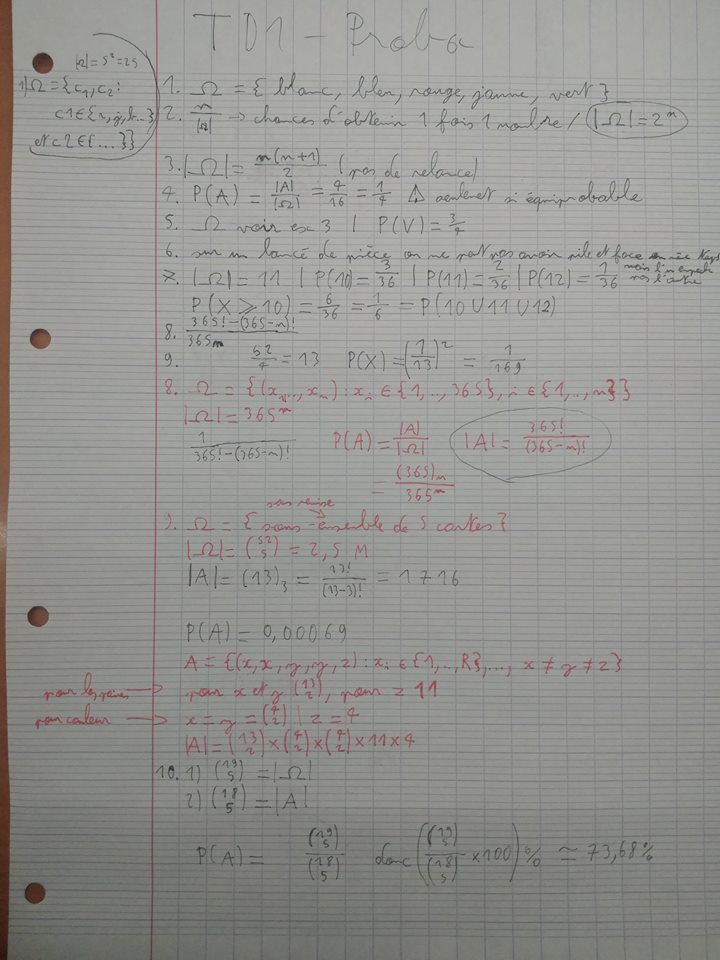 TD1 - Proba
|Ω| = 5² = 25
1) Ω = {c1, c2 :
c1 ∈ {r, j, b...}
et c2 ∈ {...}}
1. Ω = { blanc, bleu, rouge, jaune, vert }
2. n/|Ω| → chances d'obtenir 1 fois 1 nombre / |Ω| = 2^n
3. |Ω| = n(n+1)/2 (pas de relance)
4. P(A) = |A|/|Ω| = 4/16 = 1/4 ⚠ seulement si équiprobable
5. Ω voir ex 3 | P(V) = 3/4
6. sur un lancé de pièce on ne peut pas avoir pile et face en même temps
mais l'un empeche pas l'autre
7. |Ω| = 11 | P(10) = 3/36 | P(11) = 2/36 | P(12) = 1/36
P(X ≥ 10) = 6/36 = 1/6 = P(10 ∪ 11 ∪ 12)
8. 365! - (365-n)! / 365^n
9. 52/4 = 13 P(X) = (1/13)² = 1/169
8. Ω = {(x1,.., xn) : xi ∈ {1,.., 365}, i ∈ {1,.., n}}
|Ω| = 365^n
1 / 365! - (365-n)! P(A) = |A|/|Ω| |A| = 365!/(365-n)!
= (365)n / 365^n
sans remise
9. Ω = { sous-ensemble de 5 cartes }
|Ω| = (52 5) = 2,5 M
|A| = (13)3 = 13!/(13-3)! = 1716
P(A) = 0,00069
A = {(x, x, y, y, z) : xi ∈ {1,.., R},..., x ≠ y ≠ z}
pour les paires → pour x et y (13 2), pour z 11
pour couleur → x = y = (4 2) | z = 4
|A| = (13 2) × (4 2) × (4 2) × 11 × 4
10. 1) (19 5) = |Ω|
2) (18 5) = |A|
P(A) = (19 5)/(18 5) donc ((19 5)/(18 5) × 100) % ≃ 73,68%